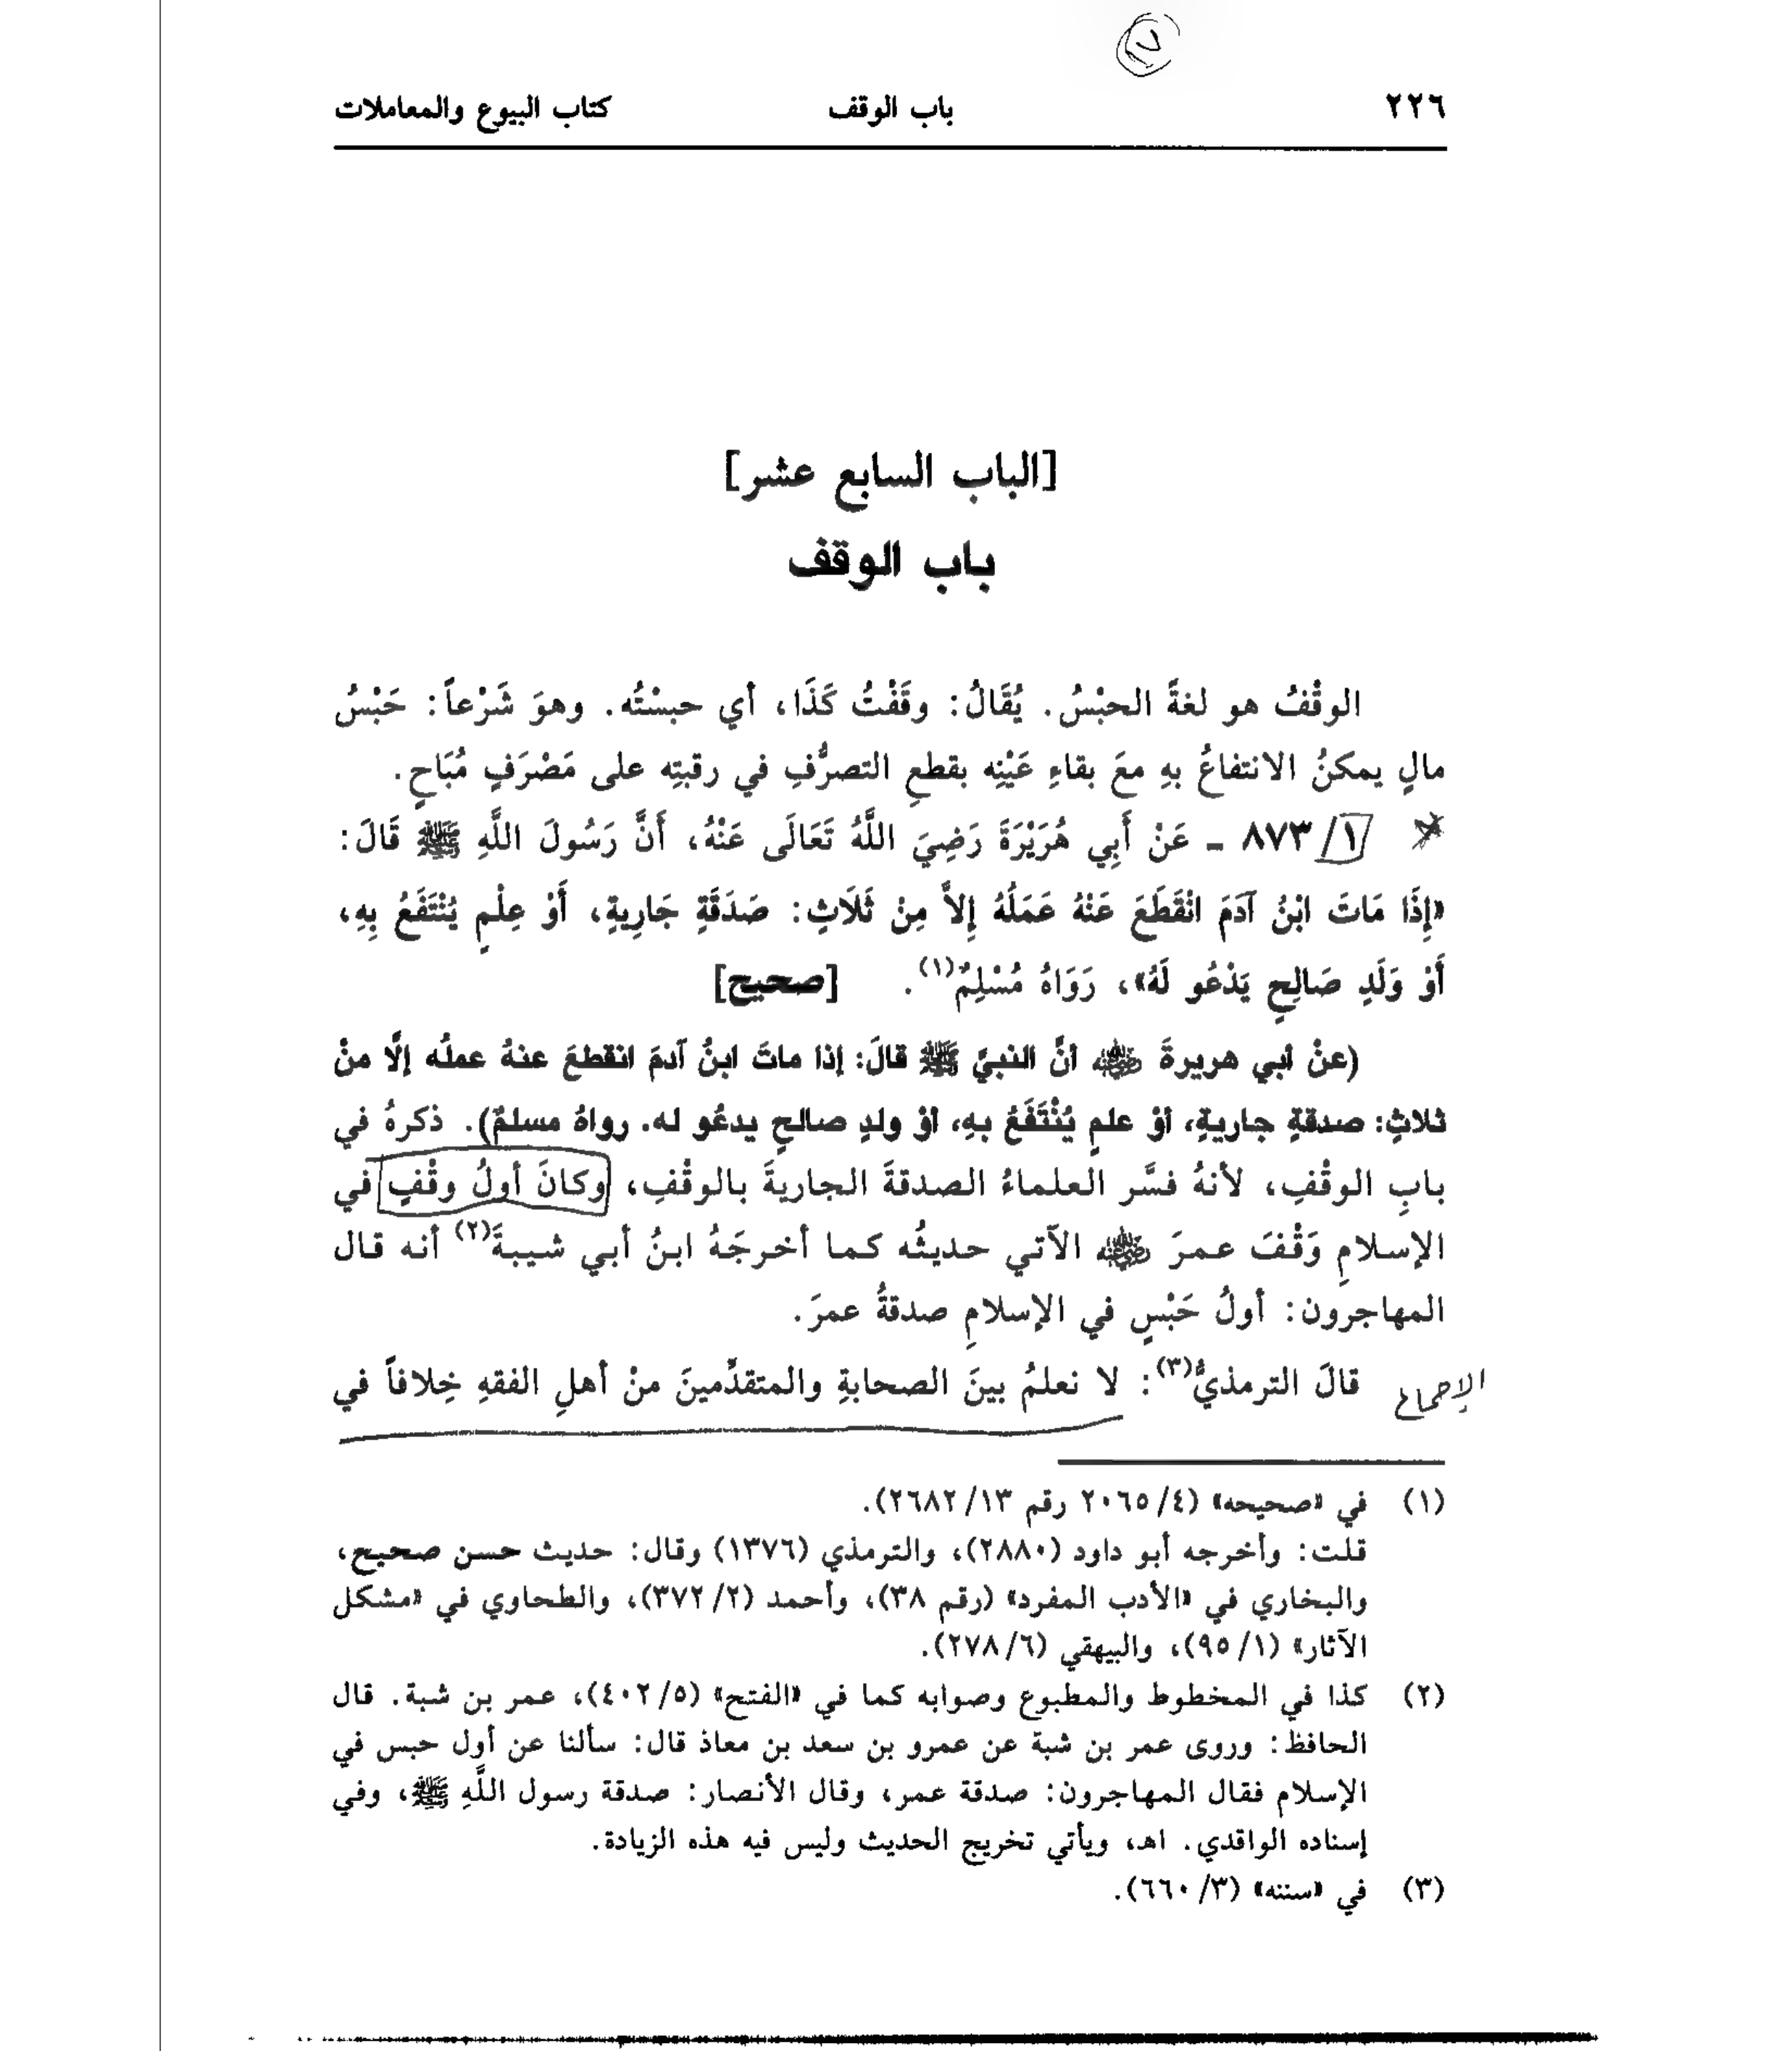 ٧
٢٢٦ باب الوقف كتاب البيوع والمعاملات
[الباب السابع عشر]
باب الوقف
الوقْفُ هو لغةً الحبْسُ. يُقَالُ: وقَفْتُ كَذَا، أي حبسْتُه. وهوَ شَرْعاً: حَبْسُ
مالٍ يمكنُ الانتفاعُ بهِ معَ بقاءِ عَيْنِه بقطعِ التصرُّفِ في رقبتِه على مَصْرَفٍ مُبَاحٍ.
١/ ٨٧٣ - عَنْ أَبِي هُرَيْرَةَ رَضِيَ اللَّهُ تَعَالَى عَنْهُ، أَنَّ رَسُولَ اللَّهِ ﷺ قَالَ:
«إِذَا مَاتَ ابْنُ آدَمَ انْقَطَعَ عَنْهُ عَمَلُهُ إِلاَّ مِنْ ثَلَاثٍ: صَدَقَةٍ جَارِيةٍ، أَوْ عِلْمٍ يُنْتَفَعُ بِهِ،
أَوْ وَلَدٍ صَالِحٍ يَدْعُو لَهُ»، رَوَاهُ مُسْلِمٌ(١). [صحيح]
(عنْ أبي هريرةَ ﵁ أنَّ النبيَّ ﷺ قالَ: إذا ماتَ ابنُ آدمَ انقطعَ عنهُ عملُه إلَّا منْ
ثلاثٍ: صدقةٍ جاريةٍ، أوْ علمٍ يُنْتَفَعُ بهِ، أوْ ولدٍ صالحٍ يدعُو له. رواهُ مسلمٌ). ذكرهُ في
بابِ الوقْفِ، لأنهُ فسَّر العلماءُ الصدقةَ الجاريةَ بالوقْفِ، وكانَ أولُ وقْفٍ في
الإسلامِ وَقْفَ عمرَ ﵁ الآتي حديثُه كما أخرجَهُ ابنُ أبي شيبةَ(٢) أنه قال
المهاجرون: أولُ حَبْسٍ في الإسلامِ صدقةُ عمرَ.
قالَ الترمذيُّ(٣): لا نعلمُ بينَ الصحابةِ والمتقدِّمينَ منْ أهلِ الفقهِ خِلافاً في
الإجماع
(١) في «صحيحه» (٤/ ٢٠٦٥ رقم ١٣/ ٢٦٨٢).
قلت: وأخرجه أبو داود (٢٨٨٠)، والترمذي (١٣٧٦) وقال: حديث حسن صحيح،
والبخاري في «الأدب المفرد» (رقم ٣٨)، وأحمد (٢/ ٣٧٢)، والطحاوي في «مشكل
الآثار» (١/ ٩٥)، والبيهقي (٦/ ٢٧٨).
(٢) كذا في المخطوط والمطبوع وصوابه كما في «الفتح» (٥/ ٤٠٢)، عمر بن شبة. قال
الحافظ: وروى عمر بن شبة عن عمرو بن سعد بن معاذ قال: سألنا عن أول حبس في
الإسلام فقال المهاجرون: صدقة عمر، وقال الأنصار: صدقة رسول اللَّهِ ﷺ، وفي
إسناده الواقدي. اهـ، ويأتي تخريج الحديث وليس فيه هذه الزيادة.
(٣) في «سننه» (٣/ ٦٦٠).